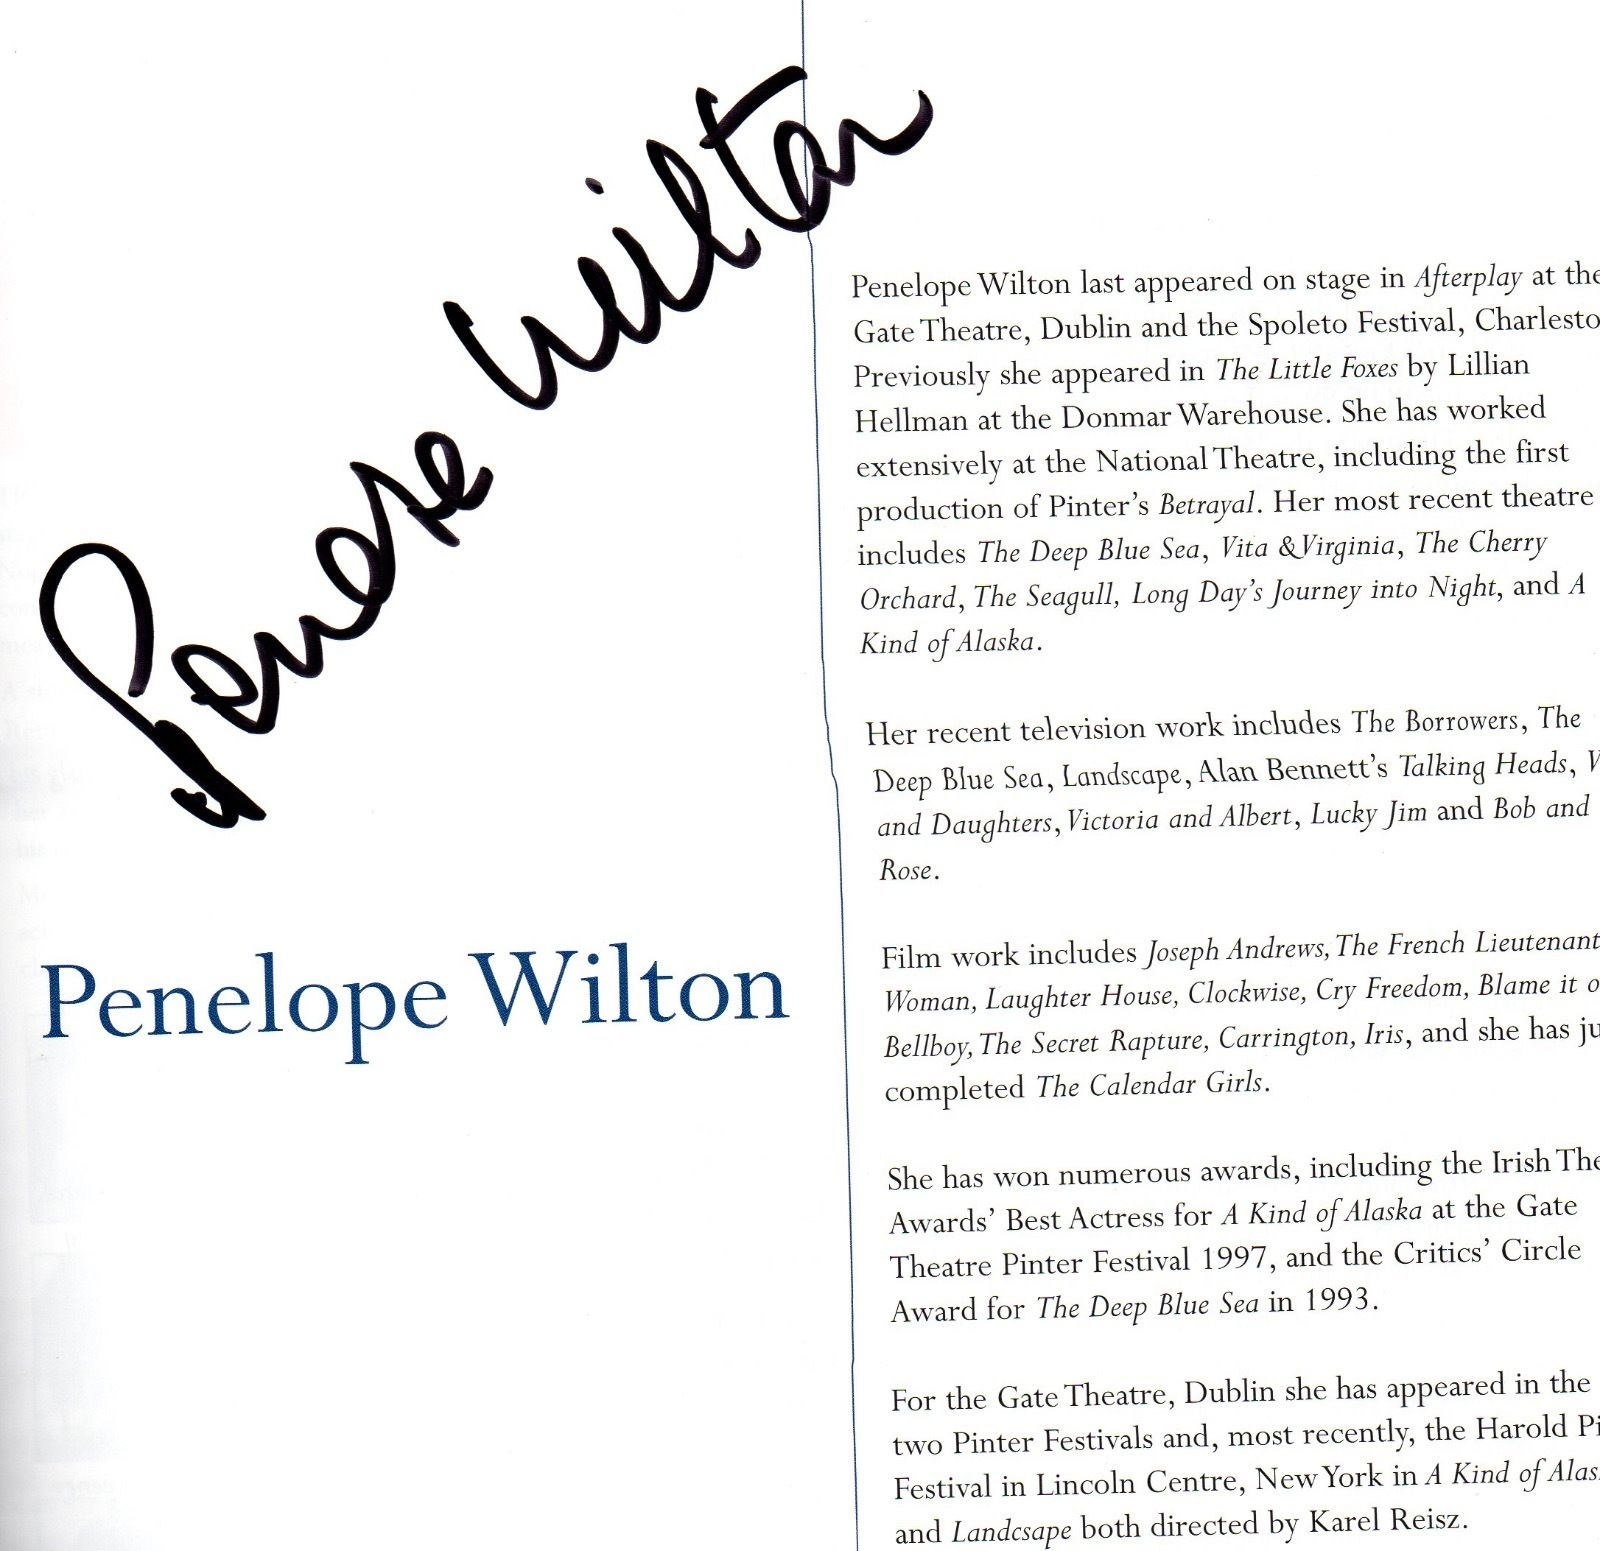 Penelope Wilton
Penelope Wilton
Penelope Wilton last appeared on stage in Afterplay at the
Gate Theatre, Dublin and the Spoleto Festival, Charlesto
Previously she appeared in The Little Foxes by Lillian
Hellman at the Donmar Warehouse. She has worked
extensively at the National Theatre, including the first
production of Pinter's Betrayal. Her most recent theatre
includes The Deep Blue Sea, Vita & Virginia, The Cherry
Orchard, The Seagull, Long Day's Journey into Night, and A
Kind of Alaska.
Her recent television work includes The Borrowers, The
Deep Blue Sea, Landscape, Alan Bennett's Talking Heads, W
and Daughters, Victoria and Albert, Lucky Jim and Bob and
Rose.
Film work includes Joseph Andrews, The French Lieutenant
Woman, Laughter House, Clockwise, Cry Freedom, Blame it o
Bellboy, The Secret Rapture, Carrington, Iris, and she has ju
completed The Calendar Girls.
She has won numerous awards, including the Irish The
Awards' Best Actress for A Kind of Alaska at the Gate
Theatre Pinter Festival 1997, and the Critics' Circle
Award for The Deep Blue Sea in 1993.
For the Gate Theatre, Dublin she has appeared in the
two Pinter Festivals and, most recently, the Harold Pi
Festival in Lincoln Centre, New York in A Kind of Alas
and Landcsape both directed by Karel Reisz.